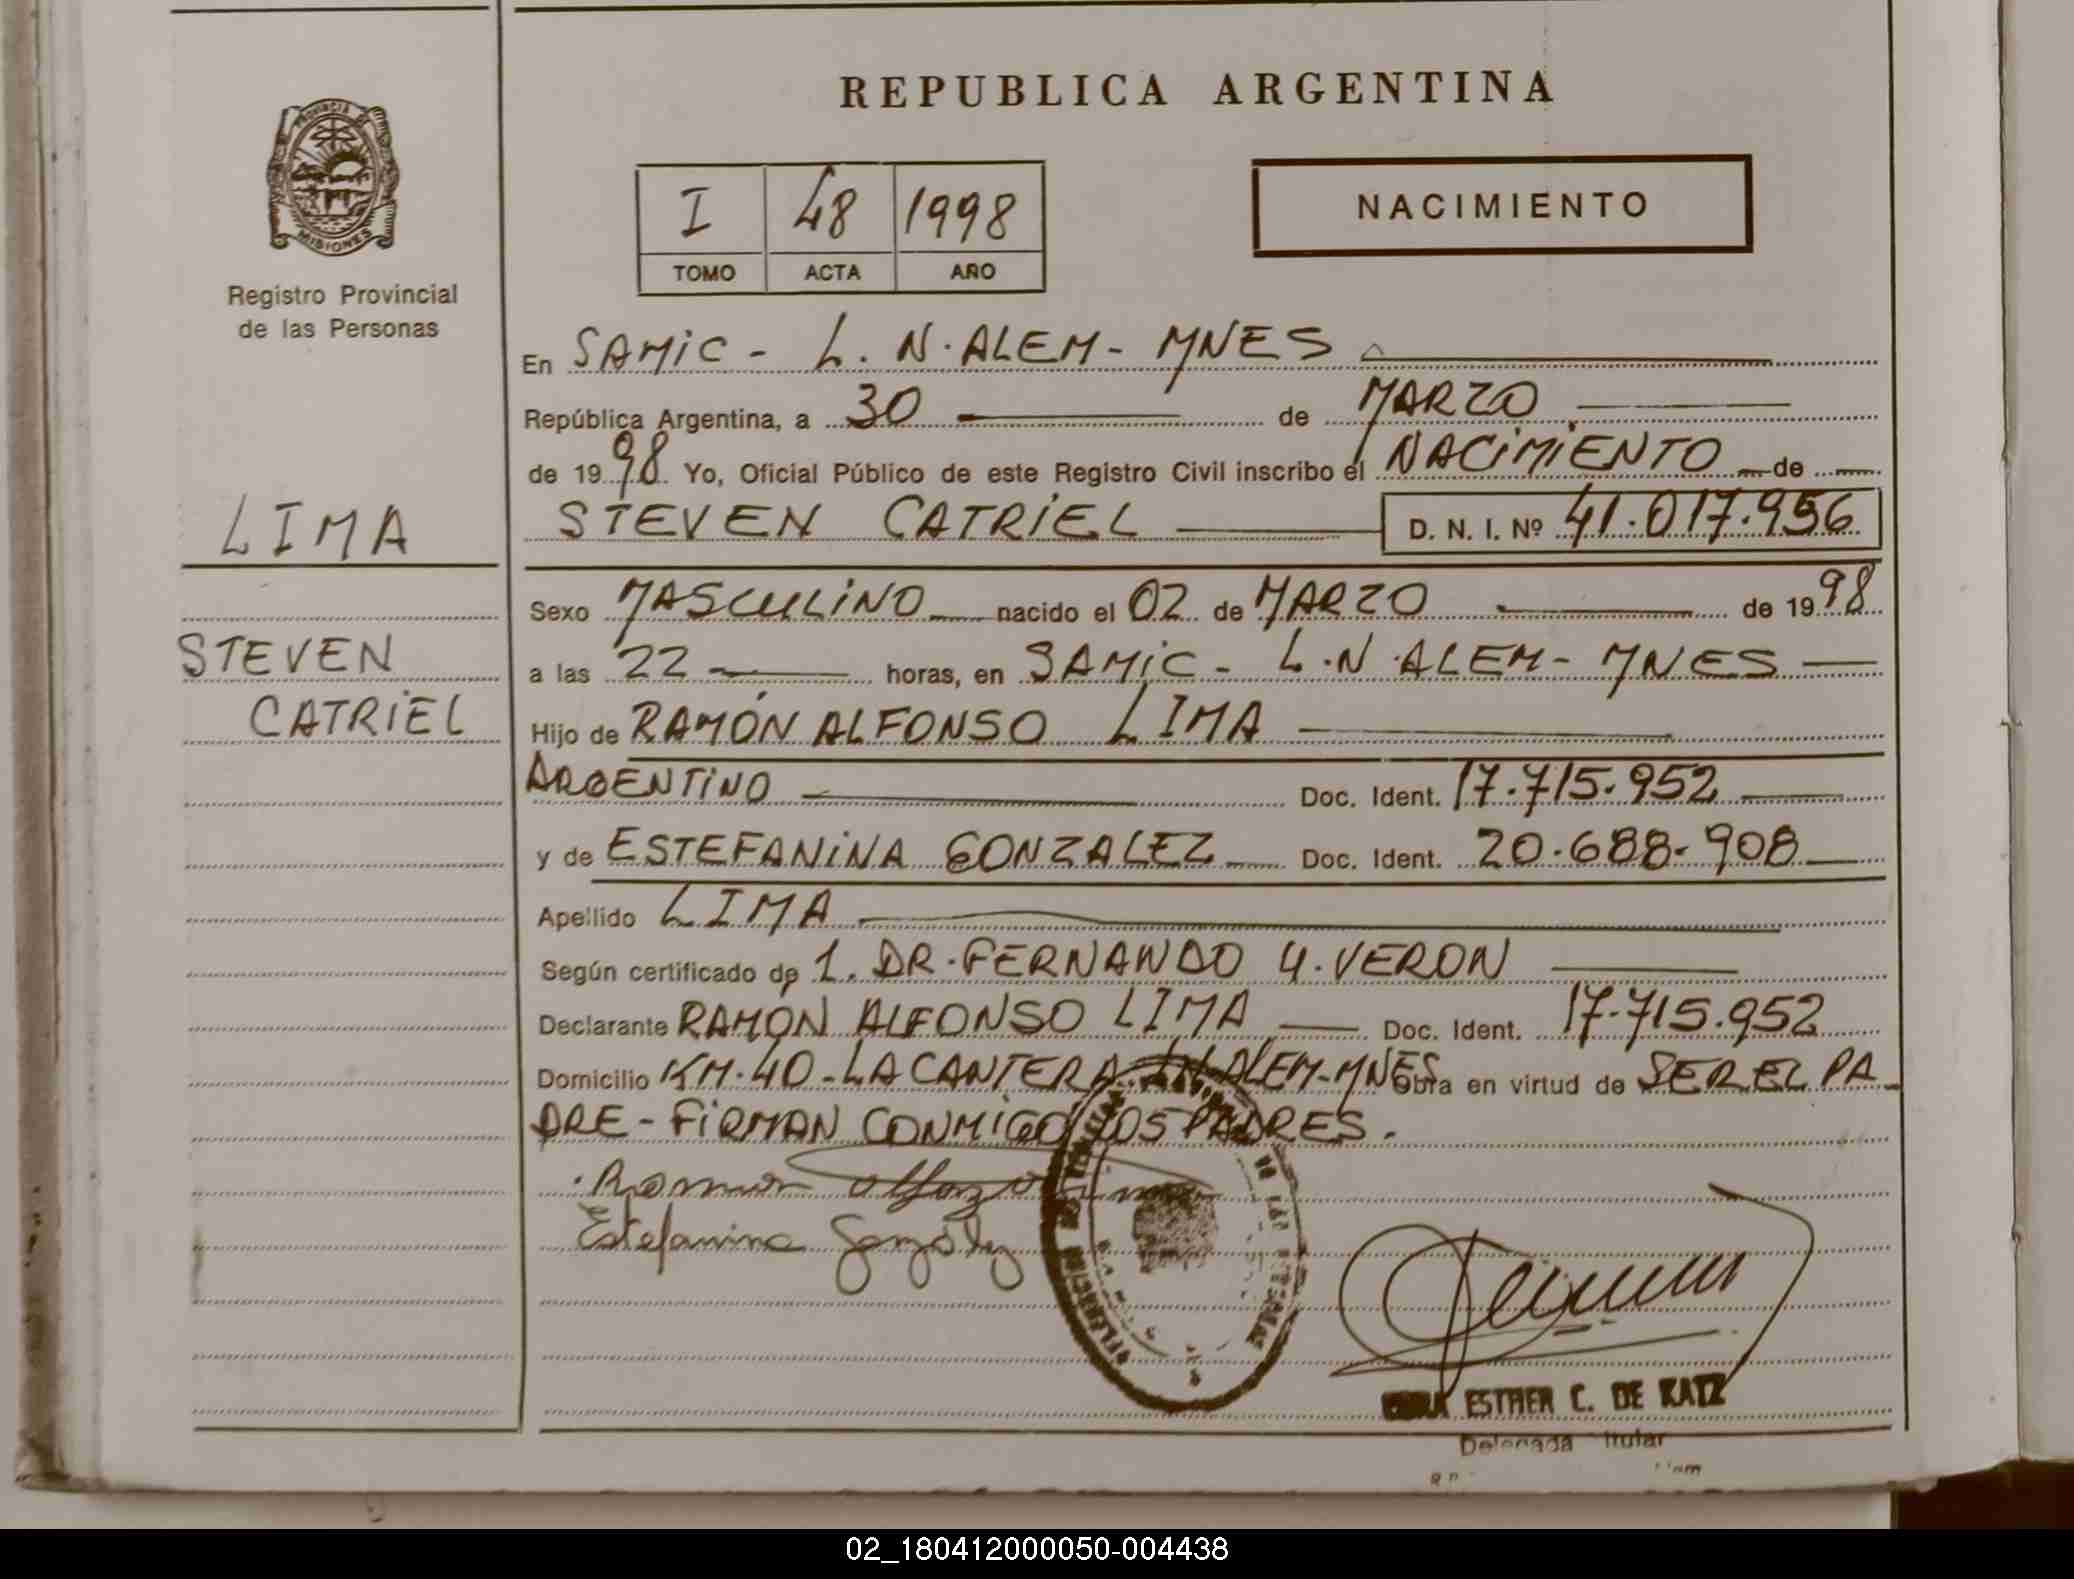 REPUBLICA ARGENTINA
PROVINCIA DE
MISIONES
Registro Provincial
de las Personas
I 48 1998
TOMO ACTA AÑO
NACIMIENTO
En SAMIC - L. N. ALEM - MNES
República Argentina, a 30 de MARZO
de 1998 Yo, Oficial Público de este Registro Civil inscribo el NACIMIENTO de
STEVEN CATRIEL D. N. I. Nº 41.017.956
LIMA
STEVEN
CATRIEL
Sexo MASCULINO nacido el 02 de MARZO de 1998
a las 22 horas, en SAMIC - L. N. ALEM - MNES
Hijo de RAMÓN ALFONSO LIMA
ARGENTINO Doc. Ident. 17.715.952
y de ESTEFANINA GONZALEZ Doc. Ident. 20.688.908
Apellido LIMA
Según certificado de 1. DR. FERNANDO VERON
Declarante RAMON ALFONSO LIMA Doc. Ident. 17.715.952
Domicilio KM. 40 - LA CANTERA ALEM - MNES Obra en virtud de SER EL PA
DRE - FIRMAN CONMIGO LOS PADRES.
Ramon Alfonzo Lima
Estefanina Gonzalez
ESTHER C. DE KATZ
Delegada Titular
02_180412000050-004438